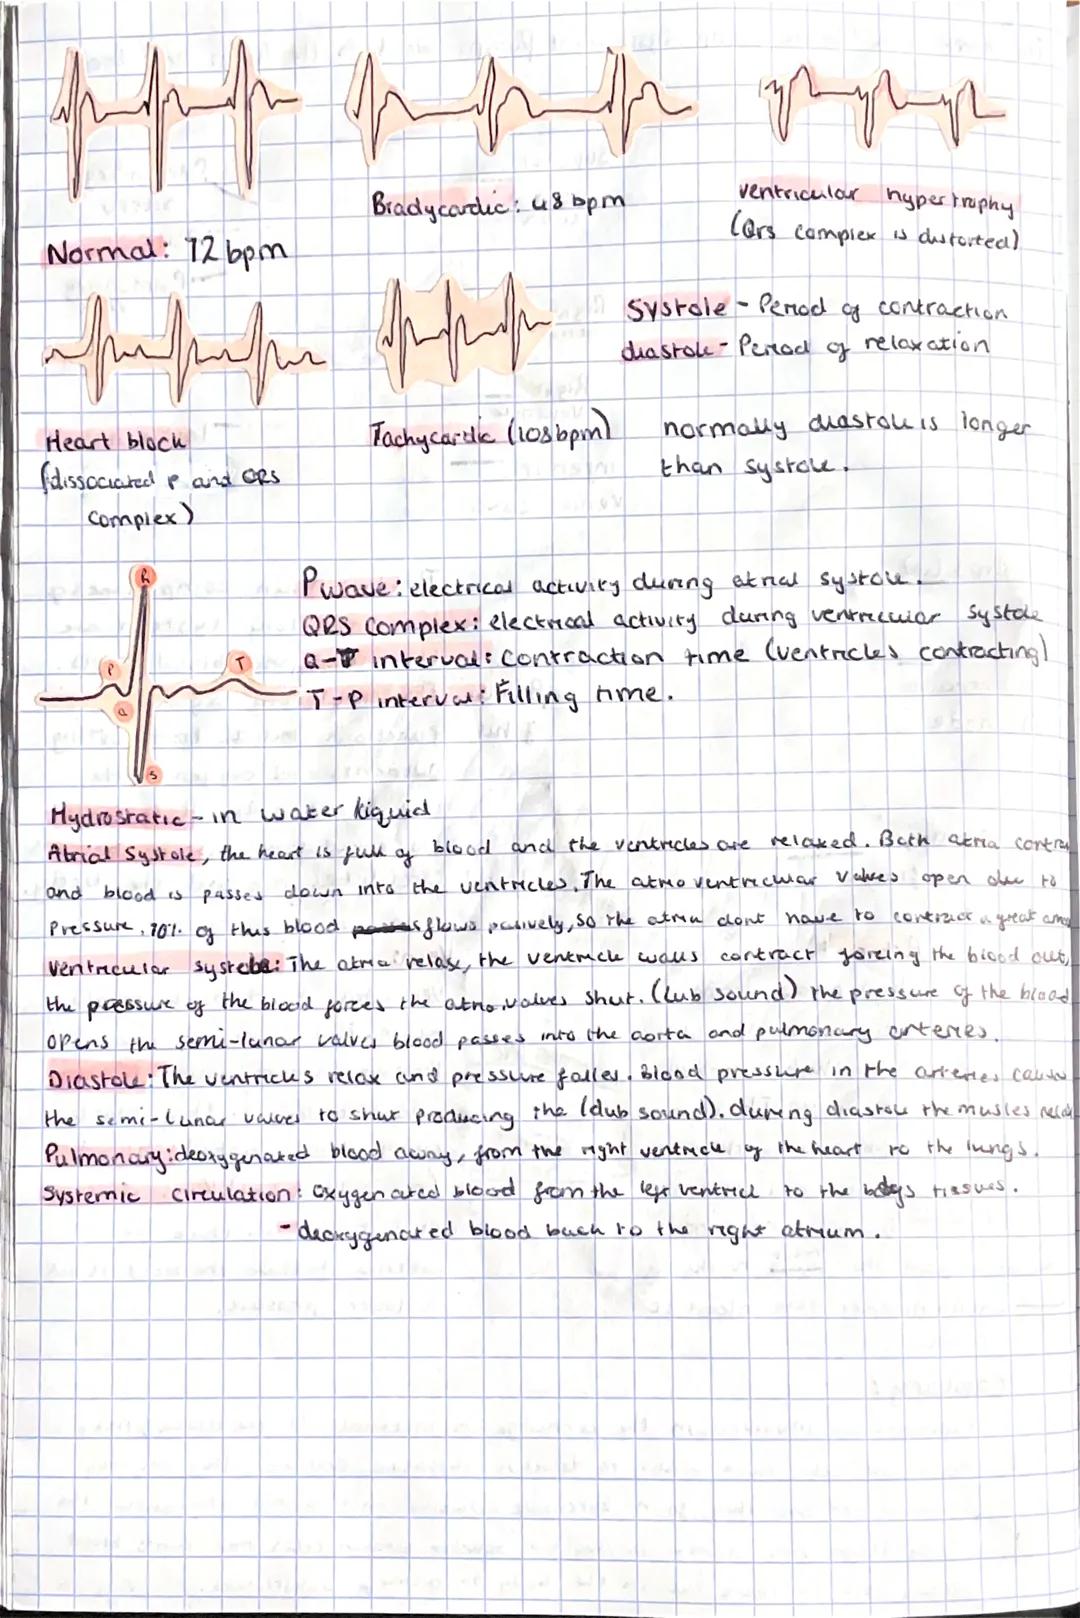 Bradycardic: 48 bpm
ventricular hypertrophy
(Qrs complex is distorted)
Normal: 72 bpm
Systole - Period of contraction
diastole - Period of relaxation
Heart block
(dissociated P and QRS
complex)
Tachycardic (108bpm)
normally diastole is longer
than systole.
R
P
T
Q
S
P wave: electrical activity during atrial systole.
QRS complex: electrical activity during ventricular systole
Q-T interval: contraction time (ventricles contracting)
T-P interval: Filling time.
Hydrostatic - in water liquid
Atrial Systole, the heart is full of blood and the ventricles are relaxed. Both atria contra
and blood is passes down into the ventricles. The atrioventricular valves open due to
Pressure. 70% of this blood flows pasively, so the atria dont have to contract a great amo
Ventricular systole: The atria relax, the ventricle walls contract forcing the blood out,
the pressure of the blood forces the atrio.valves shut. (lub sound) the pressure of the blood
opens the semi-lunar valves blood passes into the aorta and pulmonary arteries.
Diastole: The ventricles relax and pressure falles. Blood pressure in the arteries causes
the semi-lunar valves to shut producing the (dub sound). during diastole the musles relax
Pulmonary: deoxygenated blood away, from the right ventricle of the heart to the lungs.
Systemic circulation: Oxygenated blood from the left ventricl to the bodys tissues.
- deoxygenated blood back to the right atrium.